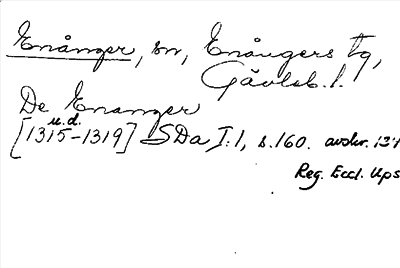 Enånger, sn, Enångers tg,
Gävleb. l.
De Enanger
u.d.
[1315-1319] SDa I:1, s.160. avskr. 13
Reg. Eccl. Ups